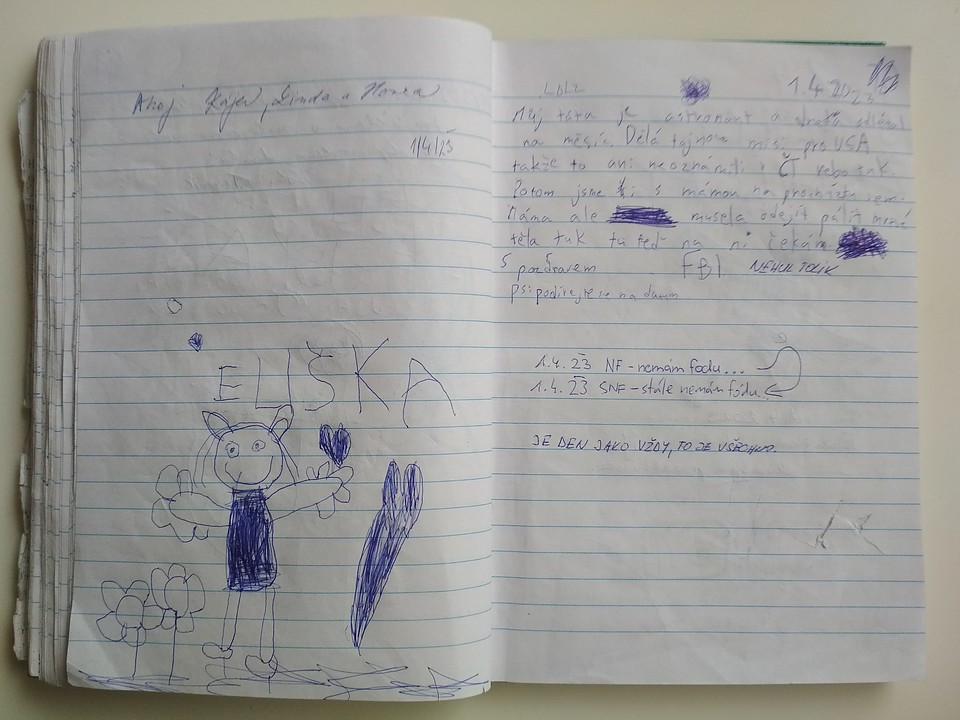 Ahoj Kájo, Linda a Honza
1/4/23
ELIŠKA
LOLZ 1.4.2023
Můj táta je astronaut a dneska odletěl
na měsíc. Dělá tajnou misi pro USA
takže to ani neoznámili v ČT nebo tak.
Potom jsme šli s mámou na procházku
Máma ale musela odejít pálit mrtvé
těla tak tu teď na ni čekám
S pozdravem FBI NEHULTOLIK
ps: podívejte se na datum
1.4.23 NF - nemám fodu...
1.4.23 SNF - stále nemám fódu..
JE DEN JAKO VŽDY, TO JE VŠECHNO.